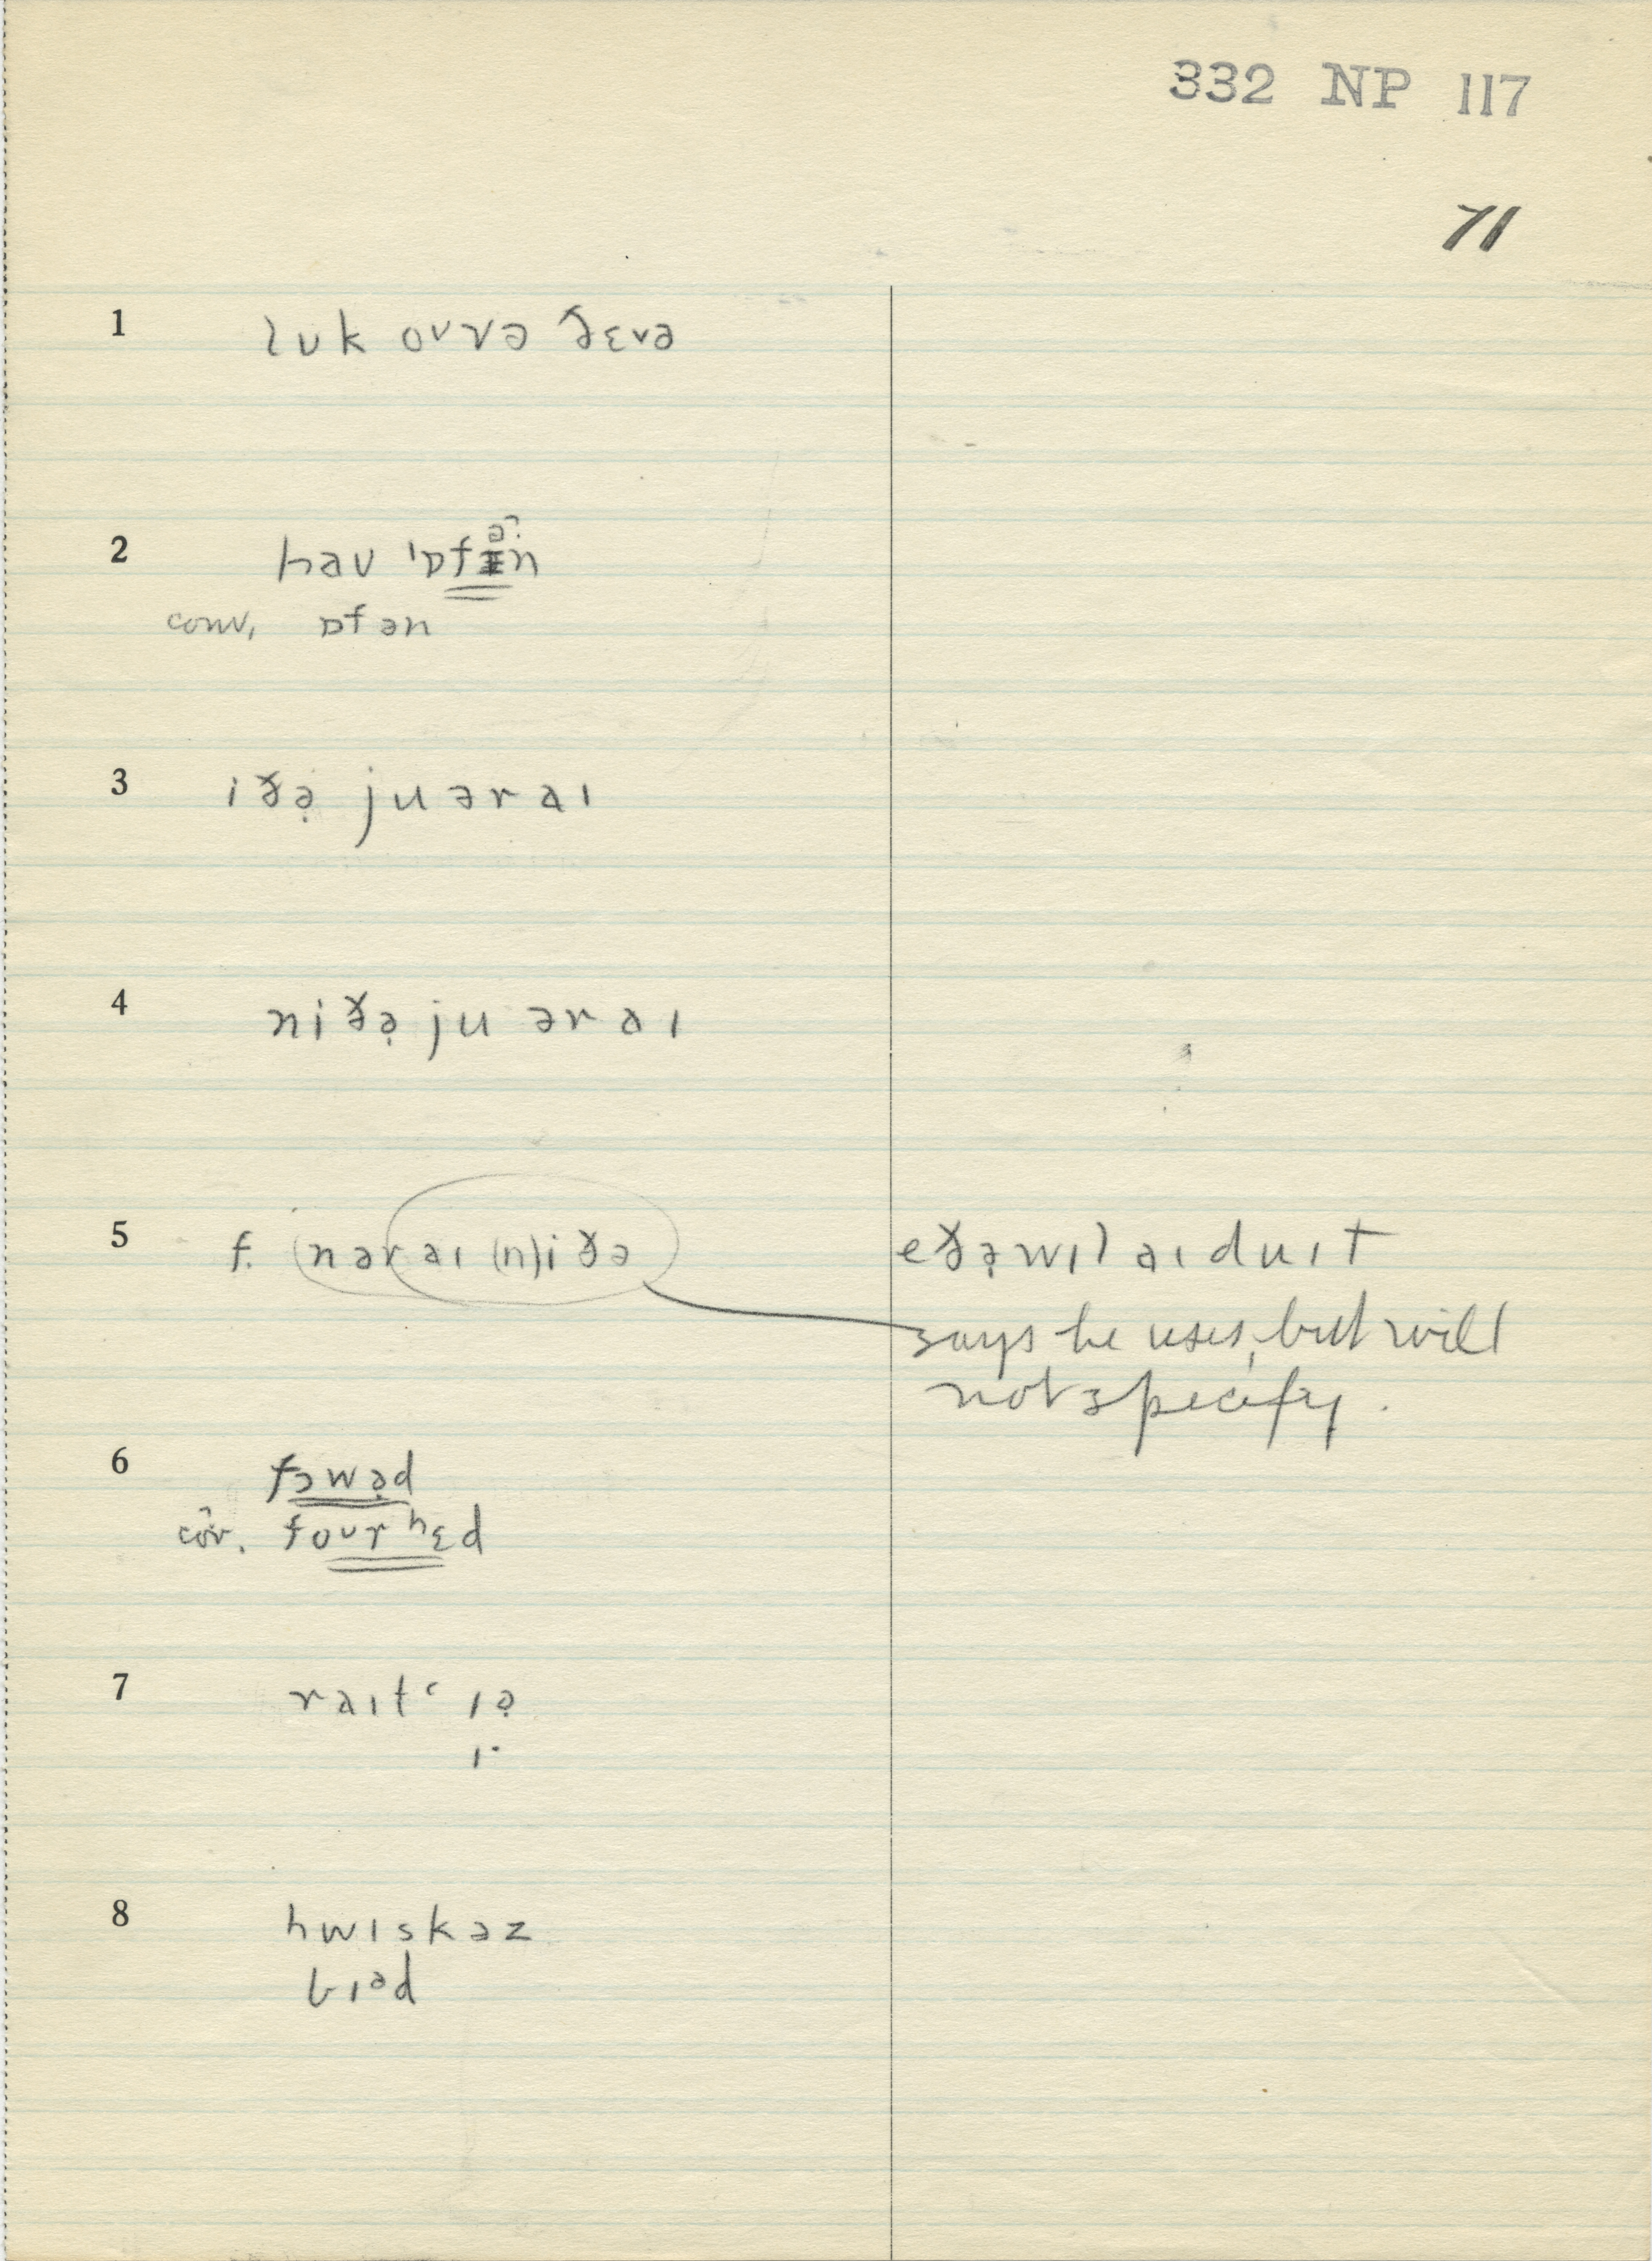 332 NP 117
71
1 lʊk oʊvə ðɛvə
2 haʊ ˈɒfən
conv. ɒfən
3 iðə̣ ju ər aɪ
4 niðə̣ ju ər aɪ
5 f. (nər aɪ (n)iðə
eðə̣ wɪl aɪ du ɪt
says he uses, but will
not specify.
6 fɔwə̣d
cōv. foʊrhɛd
7 raɪtʿ ɪə̣
8 hwɪskəz
bɪəd